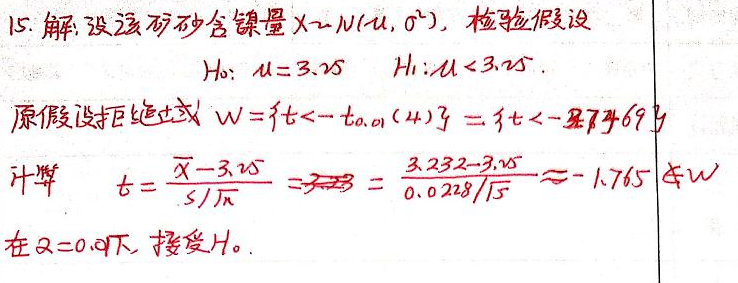 15. 解: 设该矿砂含镍量 X~N(μ, σ²), 检验假设
H₀: μ=3.25 H₁: μ<3.25.
原假设拒绝域 W={t<-t₀.₀₁(4)}={t<-3.7469}
计算 t = (x̄-3.25)/(s/√n) = (3.232-3.25)/(0.0228/√5) ≈ -1.765 ∉ W
在 α=0.01下, 接受H₀.